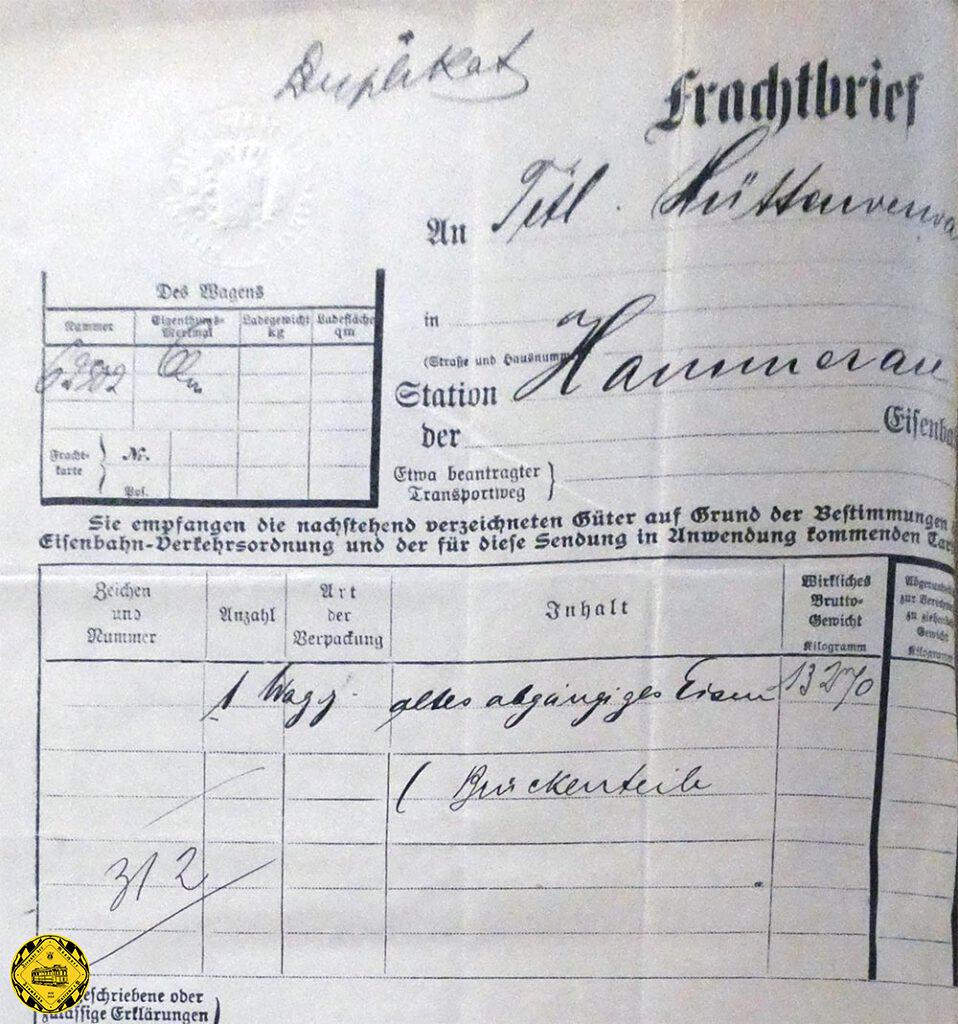 Duplikat
Frachtbrief
An Titl. Hüttenverwa
Des Wagens
Nummer
Eigenthums-
Merkmal
Ladegewicht
kg
Ladefläche
qm
in
(Straße und Hausnumm
Station Hammerau
der Eisenba
Fracht-
karte
Nr.
Pos.
Etwa beantragter
Transportweg
Sie empfangen die nachstehend verzeichneten Güter auf Grund der Bestimmungen
Eisenbahn-Verkehrsordnung und der für diese Sendung in Anwendung kommenden Tar
Zeichen
und
Nummer
Anzahl
Art
der
Verpackung
Inhalt
Wirkliches
Brutto-
Gewicht
Kilogramm
zur Berechn
zu ziehend
Gewicht
Kilogramm
1 Wagg. altes abgängiges Eisen 13270
( Brückenteile
312
eschriebene oder
zulässige Erklärungen